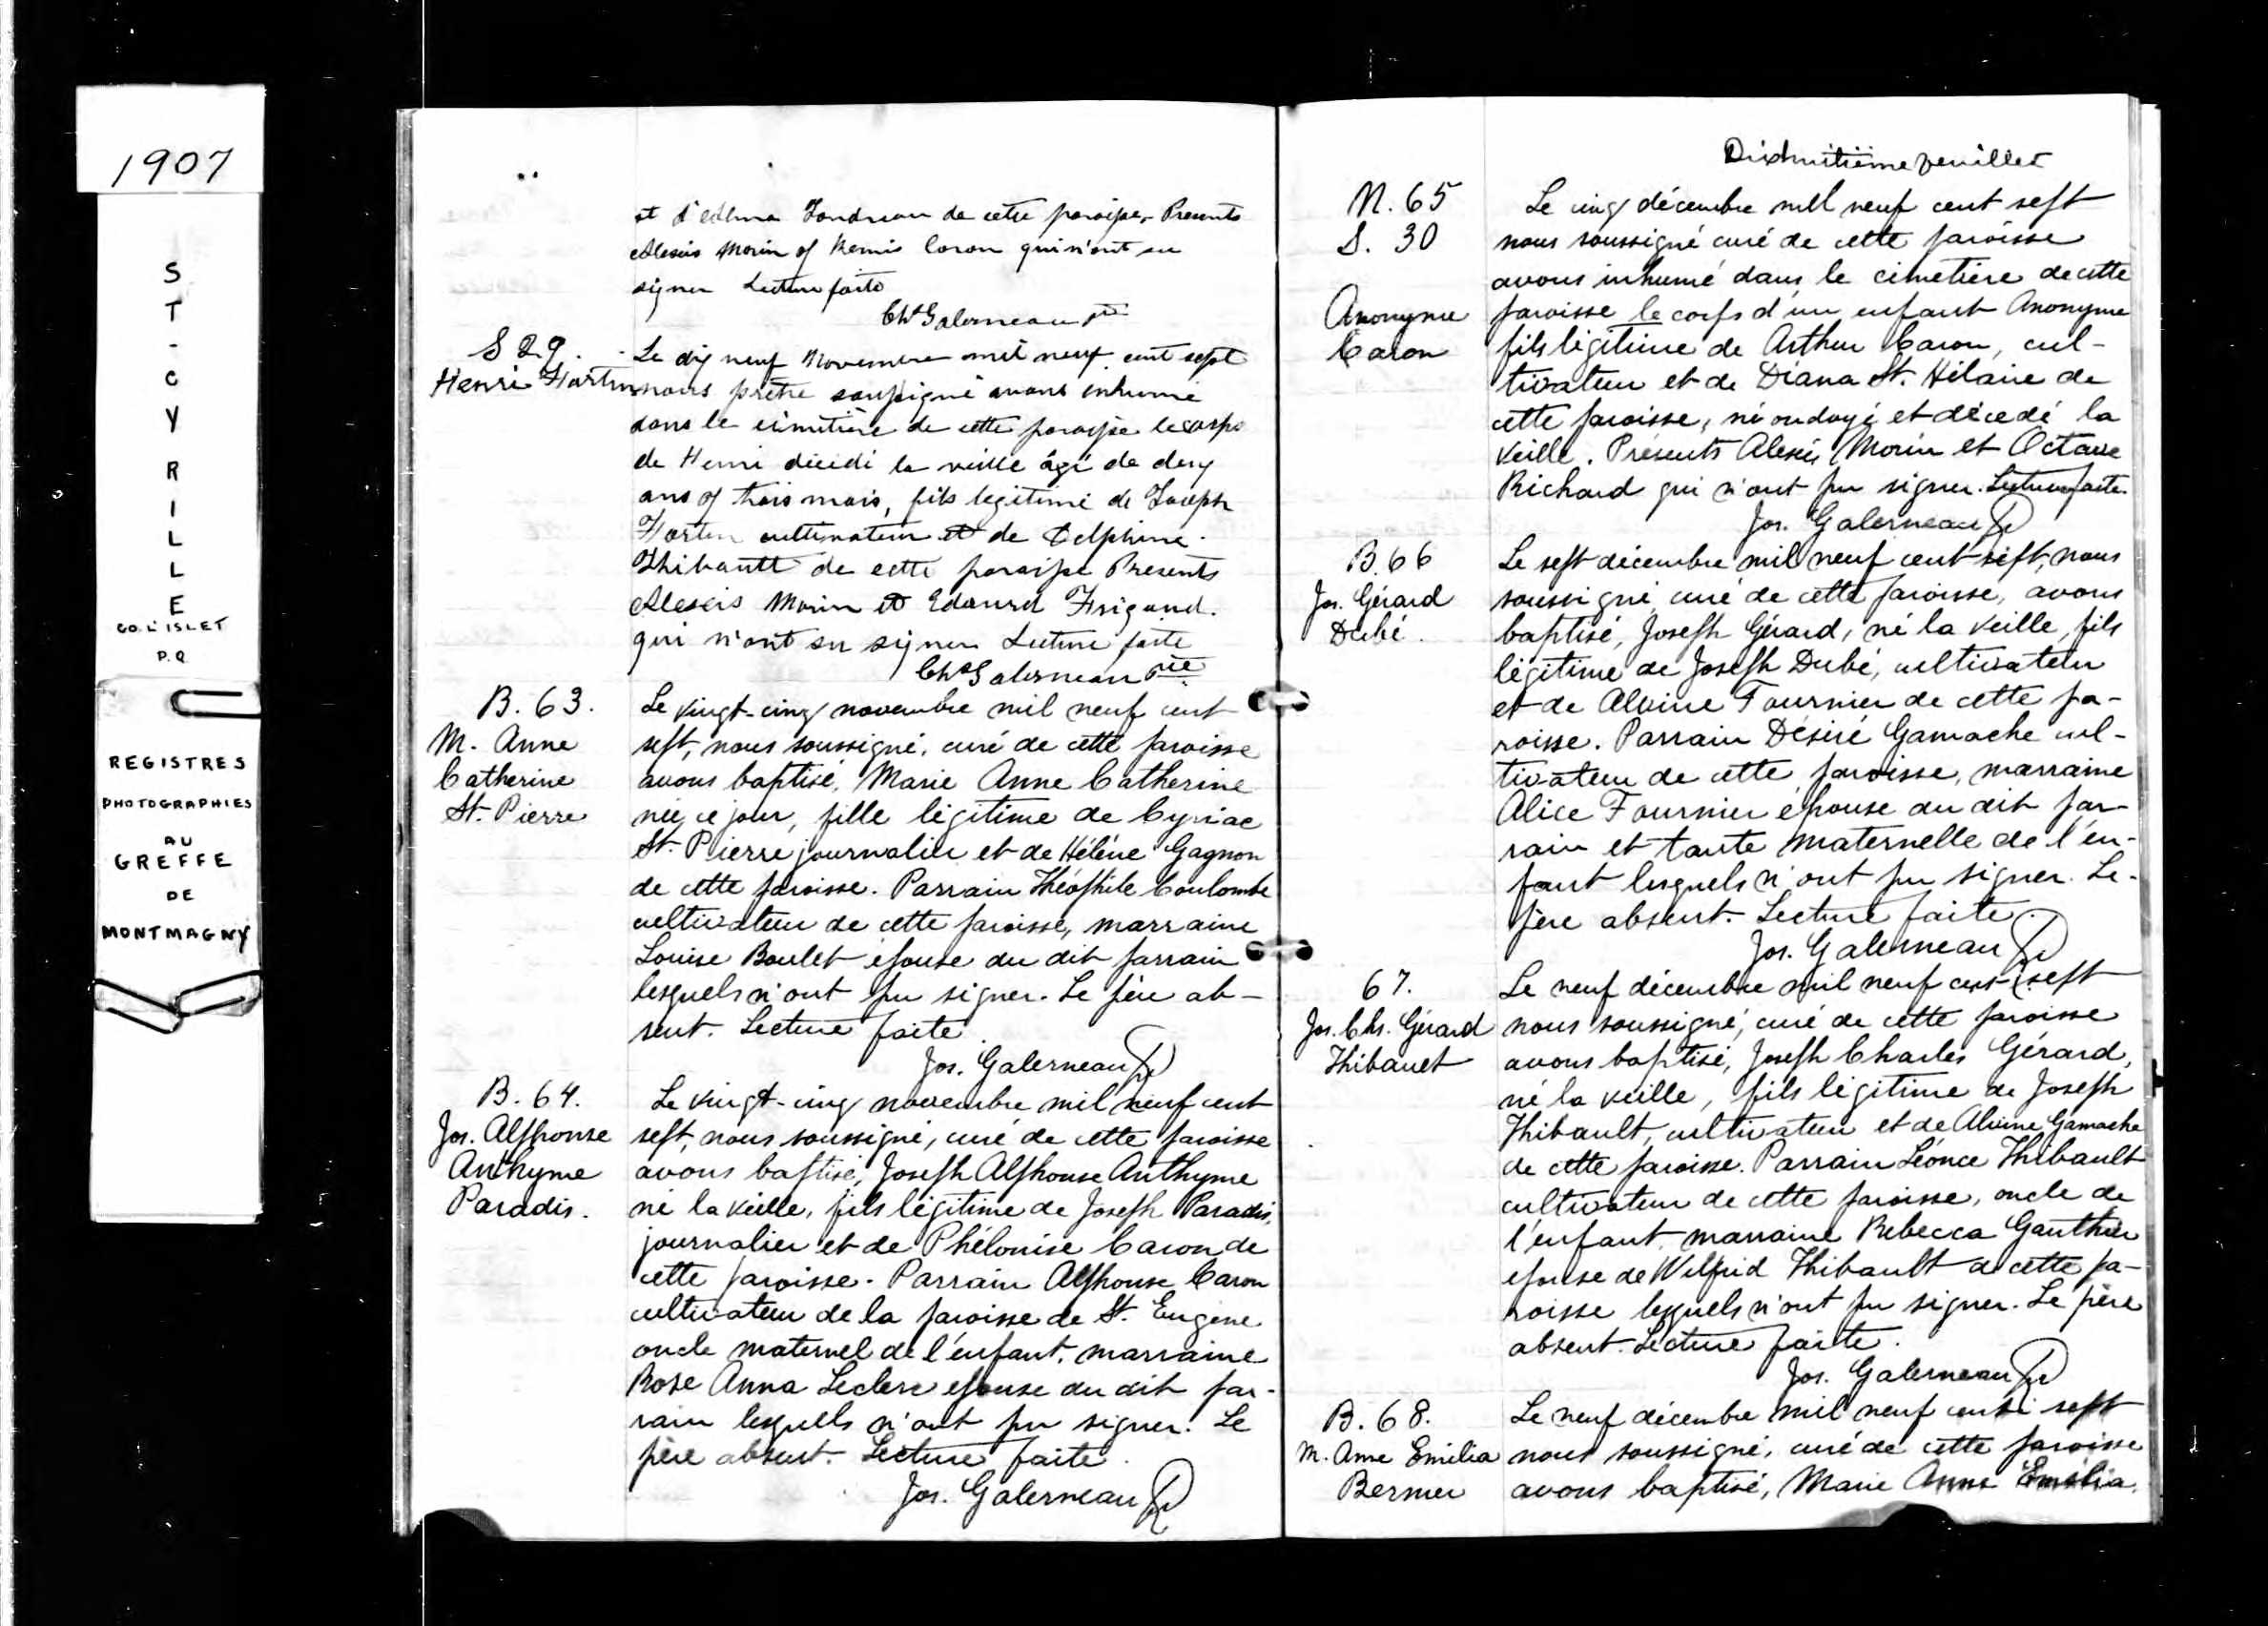 1907
ST-CYRILLE
CO. L'ISLET
P.Q.
REGISTRES
PHOTOGRAPHIES
AU
GREFFE
DE
MONTMAGNY
et d' de cette paroisse, Presents
Alexis Morin et Remis Caron qui n'ont su
signer Lecture faite
Chs Galerneau Ptre
S 29.
Henri Fortin
Le dix neuf Novembre mil neuf cent sept
nous prêtre soussigné avons inhumé
dans le cimetière de cette paroisse le corps
de Henri décédé la veille âgé de deux
ans et trois mois, fils legitime de Joseph
Fortin cultivateur et de Delphine
Thibault de cette paroisse Presents
Alexis Morin et Edouard
qui n'ont su signer Lecture faite
Chs Galerneau Ptre
B. 63.
M. Anne
Catherine
St. Pierre
Le vingt-cinq novembre mil neuf cent
sept, nous soussigné, curé de cette paroisse
avons baptisé, Marie Anne Catherine
née ce jour, fille légitime de Cyriac
St. Pierre journalier et de Hélène Gagnon
de cette paroisse. Parrain Théophile Coulombe
cultivateur de cette paroisse, marraine
Louise Boulet épouse du dit parrain
lesquels n'ont pu signer. Le père ab-
sent. Lecture faite.
Jos. Galerneau Ptre
B. 64.
Jos. Alphonse
Anthyme
Paradis.
Le vingt-cinq novembre mil neuf cent
sept, nous soussigné, curé de cette paroisse
avons baptisé, Joseph Alphonse Anthyme
né la veille, fils légitime de Joseph Paradis,
journalier et de Phélonise Caron de
cette paroisse. Parrain Alphonse Caron
cultivateur de la paroisse de St. Eugène
oncle maternel de l'enfant, marraine
Rose Anna Leclerc epouse du dit par-
rain lesquels n'ont pu signer. Le
père absent. Lecture faite.
Jos. Galerneau Ptre
Dixhuitième feuillet
N. 65
S. 30
Anonyme
Caron
Le cinq décembre mil neuf cent sept
nous soussigné curé de cette paroisse
avons inhumé dans le cimetière de cette
paroisse le corps d'un enfant Anonyme
fils légitime de Arthur Caron, cul-
tivateur et de Diana St. Hilaire de
cette paroisse, né ondoyé et décédé la
veille. Présents Alexis Morin et Octave
Richard qui n'ont pu signer. Lecture faite.
Jos. Galerneau Ptre
B. 66
Jos. Gérard
Dubé.
Le sept décembre mil neuf cent sept, nous
soussigné, curé de cette paroisse, avons
baptisé, Joseph Gérard, né la veille, fils
légitime de Joseph Dubé, cultivateur
et de Alvine Fournier de cette pa-
roisse. Parrain Désiré Gamache cul-
tivateur de cette paroisse, marraine
Alice Fournier épouse du dit par-
rain et tante maternelle de l'en-
fant lesquels n'ont pu signer. Le
père absent. Lecture faite.
Jos. Galerneau Ptre
67.
Jos. Chs. Gérard
Thibault
Le neuf décembre mil neuf cent sept
nous soussigné, curé de cette paroisse
avons baptisé, Joseph Charles Gérard,
né la veille, fils légitime de Joseph
Thibault, cultivateur et de Alvine Gamache
de cette paroisse. Parrain Léonce Thibault
cultivateur de cette paroisse, oncle de
l'enfant, marraine Rebecca Gauthier
epouse de Wilfrid Thibault de cette pa-
roisse lesquels n'ont pu signer. Le père
absent. Lecture faite.
Jos. Galerneau Ptre
B. 68.
M. Anne Emilia
Bernier
Le neuf décembre mil neuf cent sept
nous soussigné, curé de cette paroisse
avons baptisé, Marie Anne Emilia,